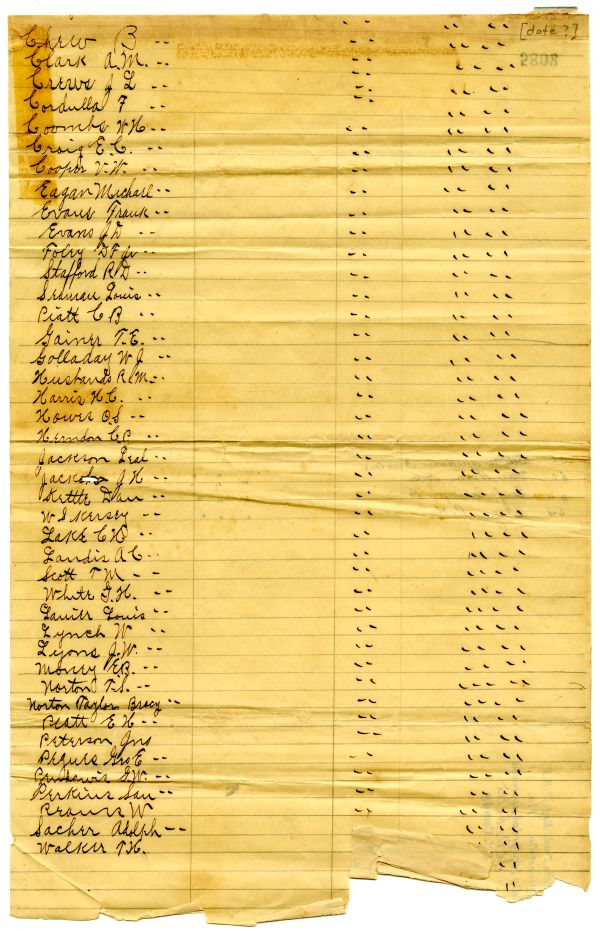 [date?]
Chew B " " " " " "
Clark A. M. " " " " " "
Crews J L " " " " " "
Cordulla F " " " " " "
Coombs W H " " " " " "
Craig E. C. " " " " " "
Cooper V. W. " " " " " "
Eagan Michael " " " " " "
Evans Frank " " " " " "
Evans J D " " " " " "
Foley D F Jr " " " " " "
Stafford R D " " " " " "
Seaman Louis " " " " " "
Piatt C B " " " " " "
Gainer T. E. " " " " " "
Golladay W J " " " " " "
Husbands R. M. " " " " " "
Harris H C. " " " " " "
Howes O. S " " " " " "
Herndon C B " " " " " "
Jackson Leal " " " " " "
Jackson J H " " " " " "
Kettle Dan " " " " " "
W S Kersey " " " " " "
Lake C D " " " " " "
Landis A C " " " " " "
Scott T M " " " " " "
White G. H. " " " " " "
Louis " " " " " "
Lynch W " " " " " "
Lyons J. W. " " " " " "
Money E. B. " " " " " "
Norton T. S. " " " " " "
Norton Taylor Bracy " " " " " "
Peatt E H " " " " " "
Peterson Jno " " " " " "
Pegues Geo E " " " " " "
G. W. " " " " " "
Perkins Sam " " " " " "
W " " " " " "
Sacher Adolph " " " " " "
Walker T. H. " " " "